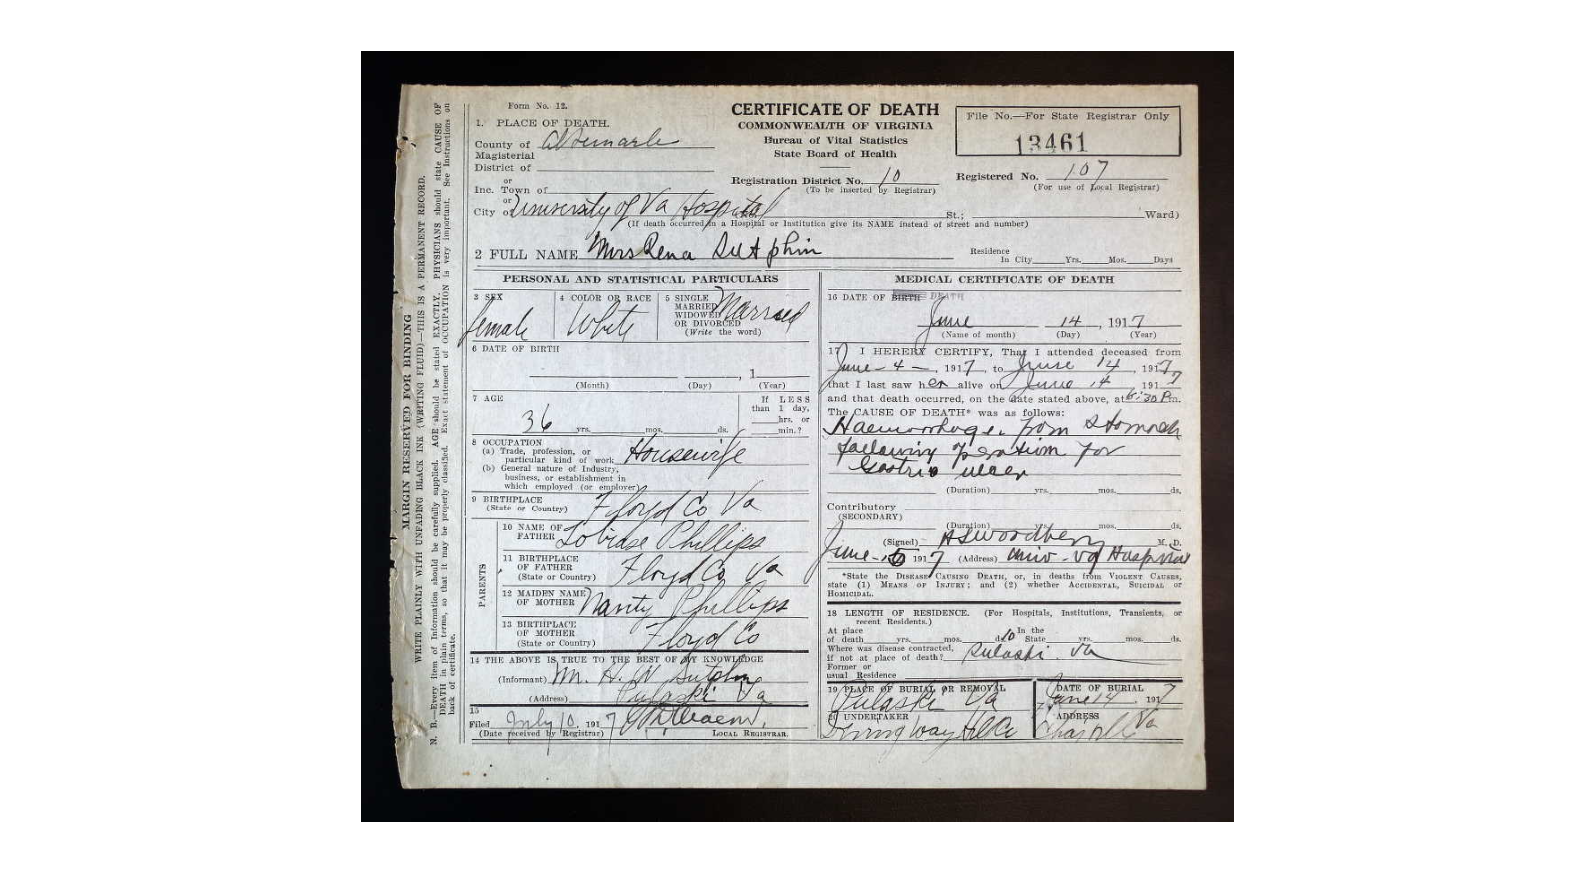 Form No. 12.
CERTIFICATE OF DEATH
COMMONWEALTH OF VIRGINIA
Bureau of Vital Statistics
State Board of Health
File No.—For State Registrar Only
13461
1. PLACE OF DEATH.
County of Albemarle
Magisterial
District of
or
Inc. Town of
or
City of University of Va Hospital St.; Ward)
(If death occurred in a Hospital or Institution give its NAME instead of street and number)
Registration District No. 10
(To be inserted by Registrar)
Registered No. 107
(For use of Local Registrar)
2 FULL NAME Mrs Rena Sutphin
Residence
In City Yrs. Mos. Days
PERSONAL AND STATISTICAL PARTICULARS
3 SEX
female
4 COLOR OR RACE
White
5 SINGLE
MARRIED
WIDOWED
OR DIVORCED
(Write the word)
Married
6 DATE OF BIRTH
, 1
(Month) (Day) (Year)
7 AGE
36 yrs. mos. ds.
If LESS
than 1 day,
hrs. or
min.?
8 OCCUPATION
(a) Trade, profession, or
particular kind of work Housewife
(b) General nature of Industry,
business, or establishment in
which employed (or employer)
9 BIRTHPLACE
(State or Country) Floyd Co Va
10 NAME OF
FATHER Phillips
PARENTS
11 BIRTHPLACE
OF FATHER
(State or Country) Floyd Co Va
12 MAIDEN NAME
OF MOTHER Phillips
13 BIRTHPLACE
OF MOTHER
(State or Country) Floyd Co
14 THE ABOVE IS TRUE TO THE BEST OF MY KNOWLEDGE
(Informant) Mr. H. W Sutphin
(Address) Pulaski Va
15
Filed July 10, 1917
(Date received by Registrar) LOCAL REGISTRAR.
MEDICAL CERTIFICATE OF DEATH
16 DATE OF BIRTH DEATH
June 14, 1917
(Name of month) (Day) (Year)
17 I HEREBY CERTIFY, That I attended deceased from
June - 4 -, 1917, to June 14, 1917
that I last saw her alive on June 14, 1917
and that death occurred, on the date stated above, at 6:30 P.m.
The CAUSE OF DEATH* was as follows:
Haemorrhage from stomach
following operation for
Gastric ulcer
(Duration) yrs. mos. ds.
Contributory
(SECONDARY)
(Duration) yrs. mos. ds.
(Signed) M. D.
June 1917 (Address) Univ. Va Hospital
*State the DISEASE CAUSING DEATH, or, in deaths from VIOLENT CAUSES,
state (1) MEANS OF INJURY; and (2) whether ACCIDENTAL, SUICIDAL or
HOMICIDAL.
18 LENGTH OF RESIDENCE. (For Hospitals, Institutions, Transients, or
recent Residents.)
At place
of death yrs. mos. ds. 10 In the
State yrs. mos. ds.
Where was disease contracted,
if not at place of death? Pulaski Va
Former or
usual Residence
19 PLACE OF BURIAL OR REMOVAL
Pulaski Va
DATE OF BURIAL
June 14, 1917
20 UNDERTAKER
ADDRESS
Va
MARGIN RESERVED FOR BINDING
WRITE PLAINLY WITH UNFADING BLACK INK (WRITING FLUID)—THIS IS A PERMANENT RECORD.
N. B.—Every item of Information should be carefully supplied. AGE should be stated EXACTLY. PHYSICIANS should state CAUSE OF
DEATH in plain terms, so that it may be properly classified. Exact statement of OCCUPATION is very important. See Instructions on
back of certificate.